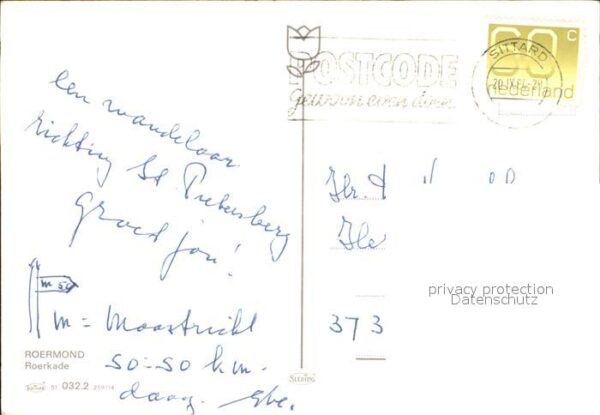 een wandelaar
richting St Pietersberg
groet jou!
m 50
m = Maastricht
50-50 km.
ROERMOND
Roerkade
51 032.2
STERING
POSTCODE
Gewoon even doen
SITTARD
20.IX.81
60 c
nederland
373
privacy protection
Datenschutz